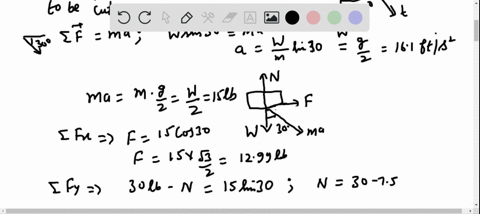 to be
30° ΣF = ma ; W sin30 = ma
a = W/m sin30 = g/2 = 16.1 ft/s²
t
ma = m·g/2 = W/2 = 15lb
N
F
W 30° ma
ΣFx => F = 15cos30
F = 15 x √3/2 = 12.99 lb
ΣFy => 30lb - N = 15 sin30 ; N = 30-7.5